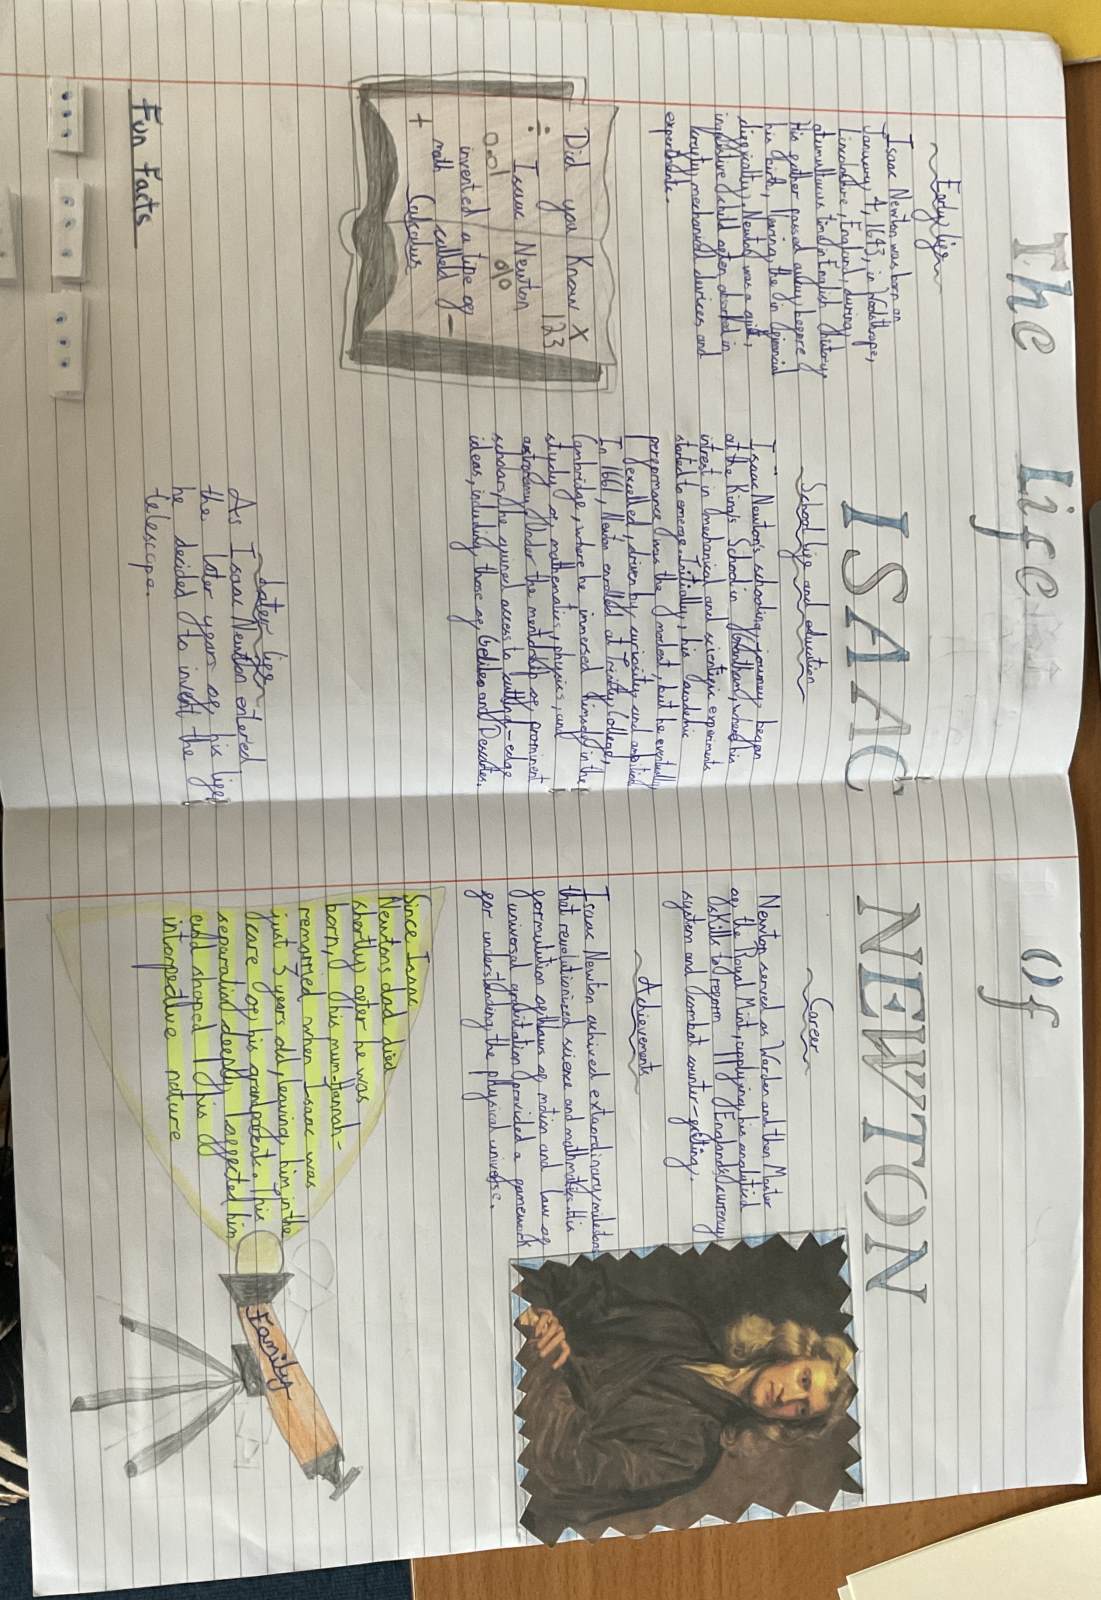 The Life Of
ISAAC NEWTON
~Early life~
Isaac Newton was born on
January 4, 1643, in Woolsthrope,
Lincolnshire, England, during
atumultuous time in English history.
His father passed away before
his birth, leaving the in financial
difficulty. Newton was a quiet,
inquisitive child often absorbed in
 mechanical devices and
experiments.
Did you Know X
÷ Isaac Newton 123
invented a type of
math called -
+ Calculus
Fun Facts
~School life and education~
Isaac Newton's schooling journey began
at the King's School in Grantham, where his
intrest in mechanical and scientific experiments
started to emerge. Initially, his academic
performance was the modest, but he eventually
excelled, driven by curiosity and ambition.
In 1661, Newton enrolled at Trinity College,
Cambridge, where he immersed himself in the
study of mathematics, physics, and
astronomy. Under the mentorship of prominent
scholars, he gained access to cutting-edge
ideas, including those of Galileo and Descartes.
~Later life~
As Isaac Newton entered
the later years of his life
he decided to invent the
telescope.
~Career~
Newton served as Warden and then Master
of the Royal Mint, applying his analytical
skills to reform England's currency
system and combat counter-feiting.
~Achievements~
Isaac Newton achived extaordinary milestones
that revolutionized science and mathmatics. His
formulation of laws of motion and law of
universal gravitation provided a framework
for understanding the physical universe.
Since Isaac
Newtons dad died
shortly after he was
born, his mum-Hannah-
remarried when Isaac was
just 3 years old, leaving him in the
care of his grandparents. This
separation deeply affected him
and shaped his
 nature
Family